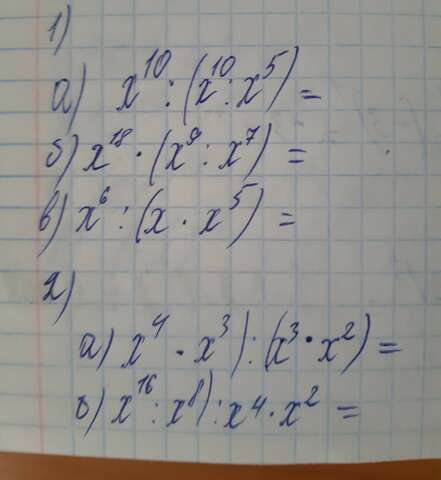 1)
а) x¹⁰ : (x¹⁰ : x⁵) =
б) x¹⁸ · (x⁹ : x⁷) =
в) x⁶ : (x · x⁵) =
2)
а) x⁴ · x³) : (x³ · x²) =
б) x¹⁶ : x⁸) : x⁴ · x² =